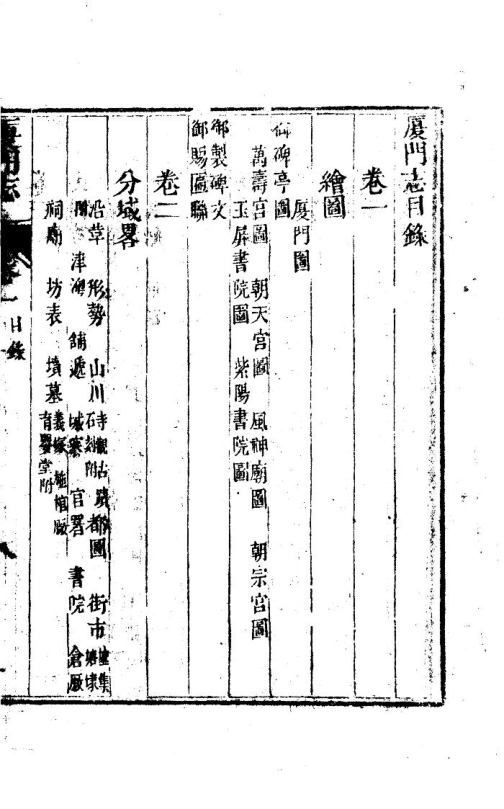 厦門志目錄
卷一
繪圖
厦門圖
御碑亭圖
萬壽宮圖 朝天宮圖 風神廟圖 朝宗宮圖
玉屏書院圖 紫陽書院圖
御製碑文
御賜匾聯
卷二
分域畧
沿革 形勢 山川 寺觀古石刻附 蹟 都圖 街市 墟集
津澳 鋪遞 城寨 官署 書院 倉廒
祠廟 坊表 墳墓 義塚 育嬰堂附
厦門志
卷一
目錄